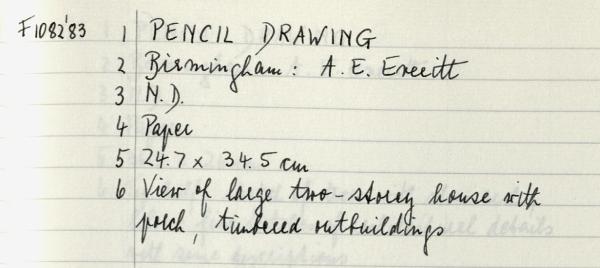 F1082'83 1 PENCIL DRAWING
2 Birmingham: A. E. Everitt
3 N.D.
4 Paper
5 24.7 x 34.5 cm
6 View of large two-storey house with
porch, timbered outbuildings